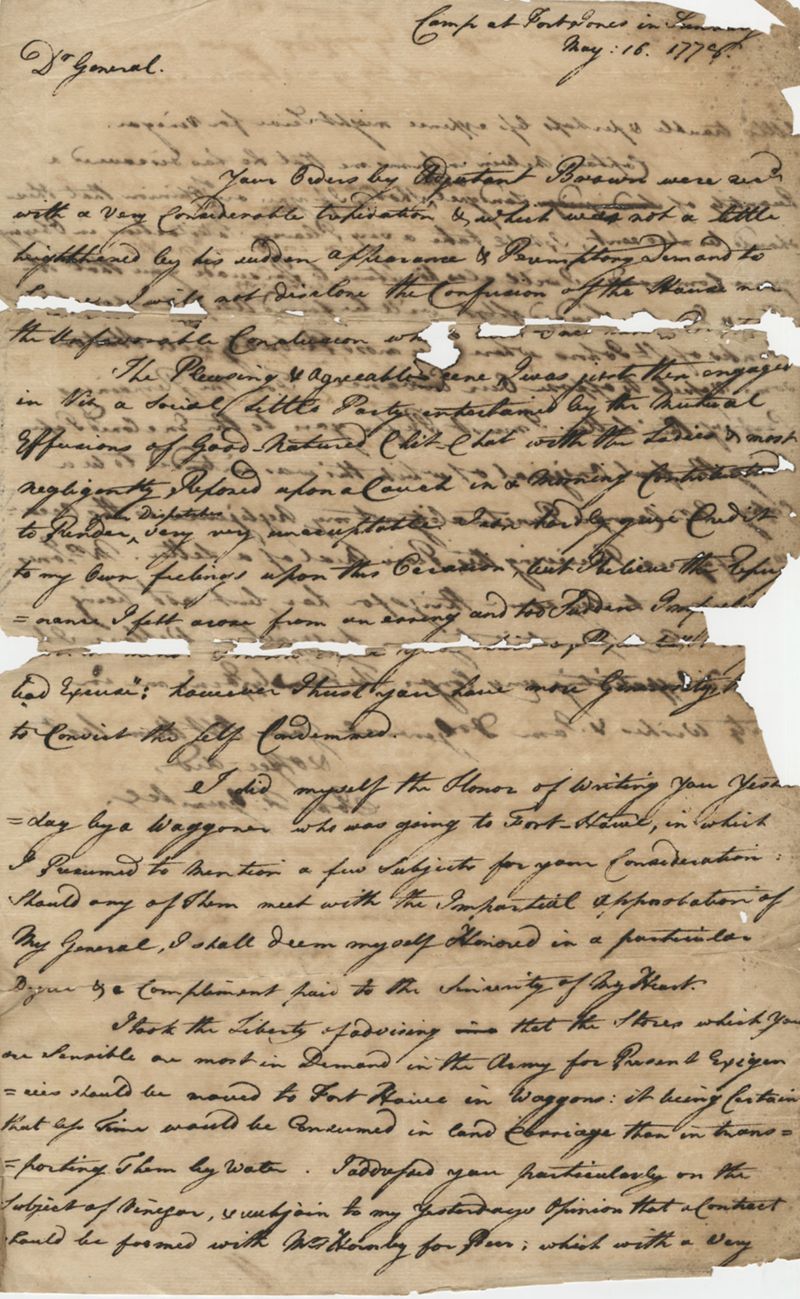 Camp at Fort Jones in Sunbury
May: 16. 1778.
Dr General.
Your Orders by Adjutant Brown were recd
with a very Considerable trepidation & which was not a little
heighthened by his sudden appearance & Peremptory Demand to
I will not disclose the Confusion of the House nor
the Unfavorable Conclusion
The Pleasing & Agreeable Scene I was just then engaged
in Viz a Social Little Party entertained by the Mutual
Effusions of Good-Natured Chit-Chat with the Ladies & most
negligently Reposed upon a Couch in a Morning
to Render, my Dispatches very very unacceptable. I can hardly give Credit
to my Own feelings upon this Occasion, but I believe the Repug
=nance I felt arose from an erring and too Sudden
bad Excuse": however I trust you have more Generosity
to Convict the self Condemned.
I did myself the Honor of Writing you Yester
=day by a Waggoner who was going to Fort-Howe, in which
I Presumed to mention a few Subjects for your Consideration:
Should any of Them meet with the Impartial Approbation of
My General, I shall deem myself Honored in a particular
Degree & a Compliment paid to the Sincerity of My Heart.
I took the Liberty of advising that the Stores which You
are Sensible are most in Demand in the Army for Present Exigen
=cies should be moved to Fort Howe in Waggons: it being Certain
that less Time would be Consumed in land Carriage than in trans=
=porting Them by Water. I addressed you particularly on the
Subject of Vinegar, & subjoin to my Yesterdays Opinion that a Contract
should be formed with Mrs Hornby for Beer; which with a very